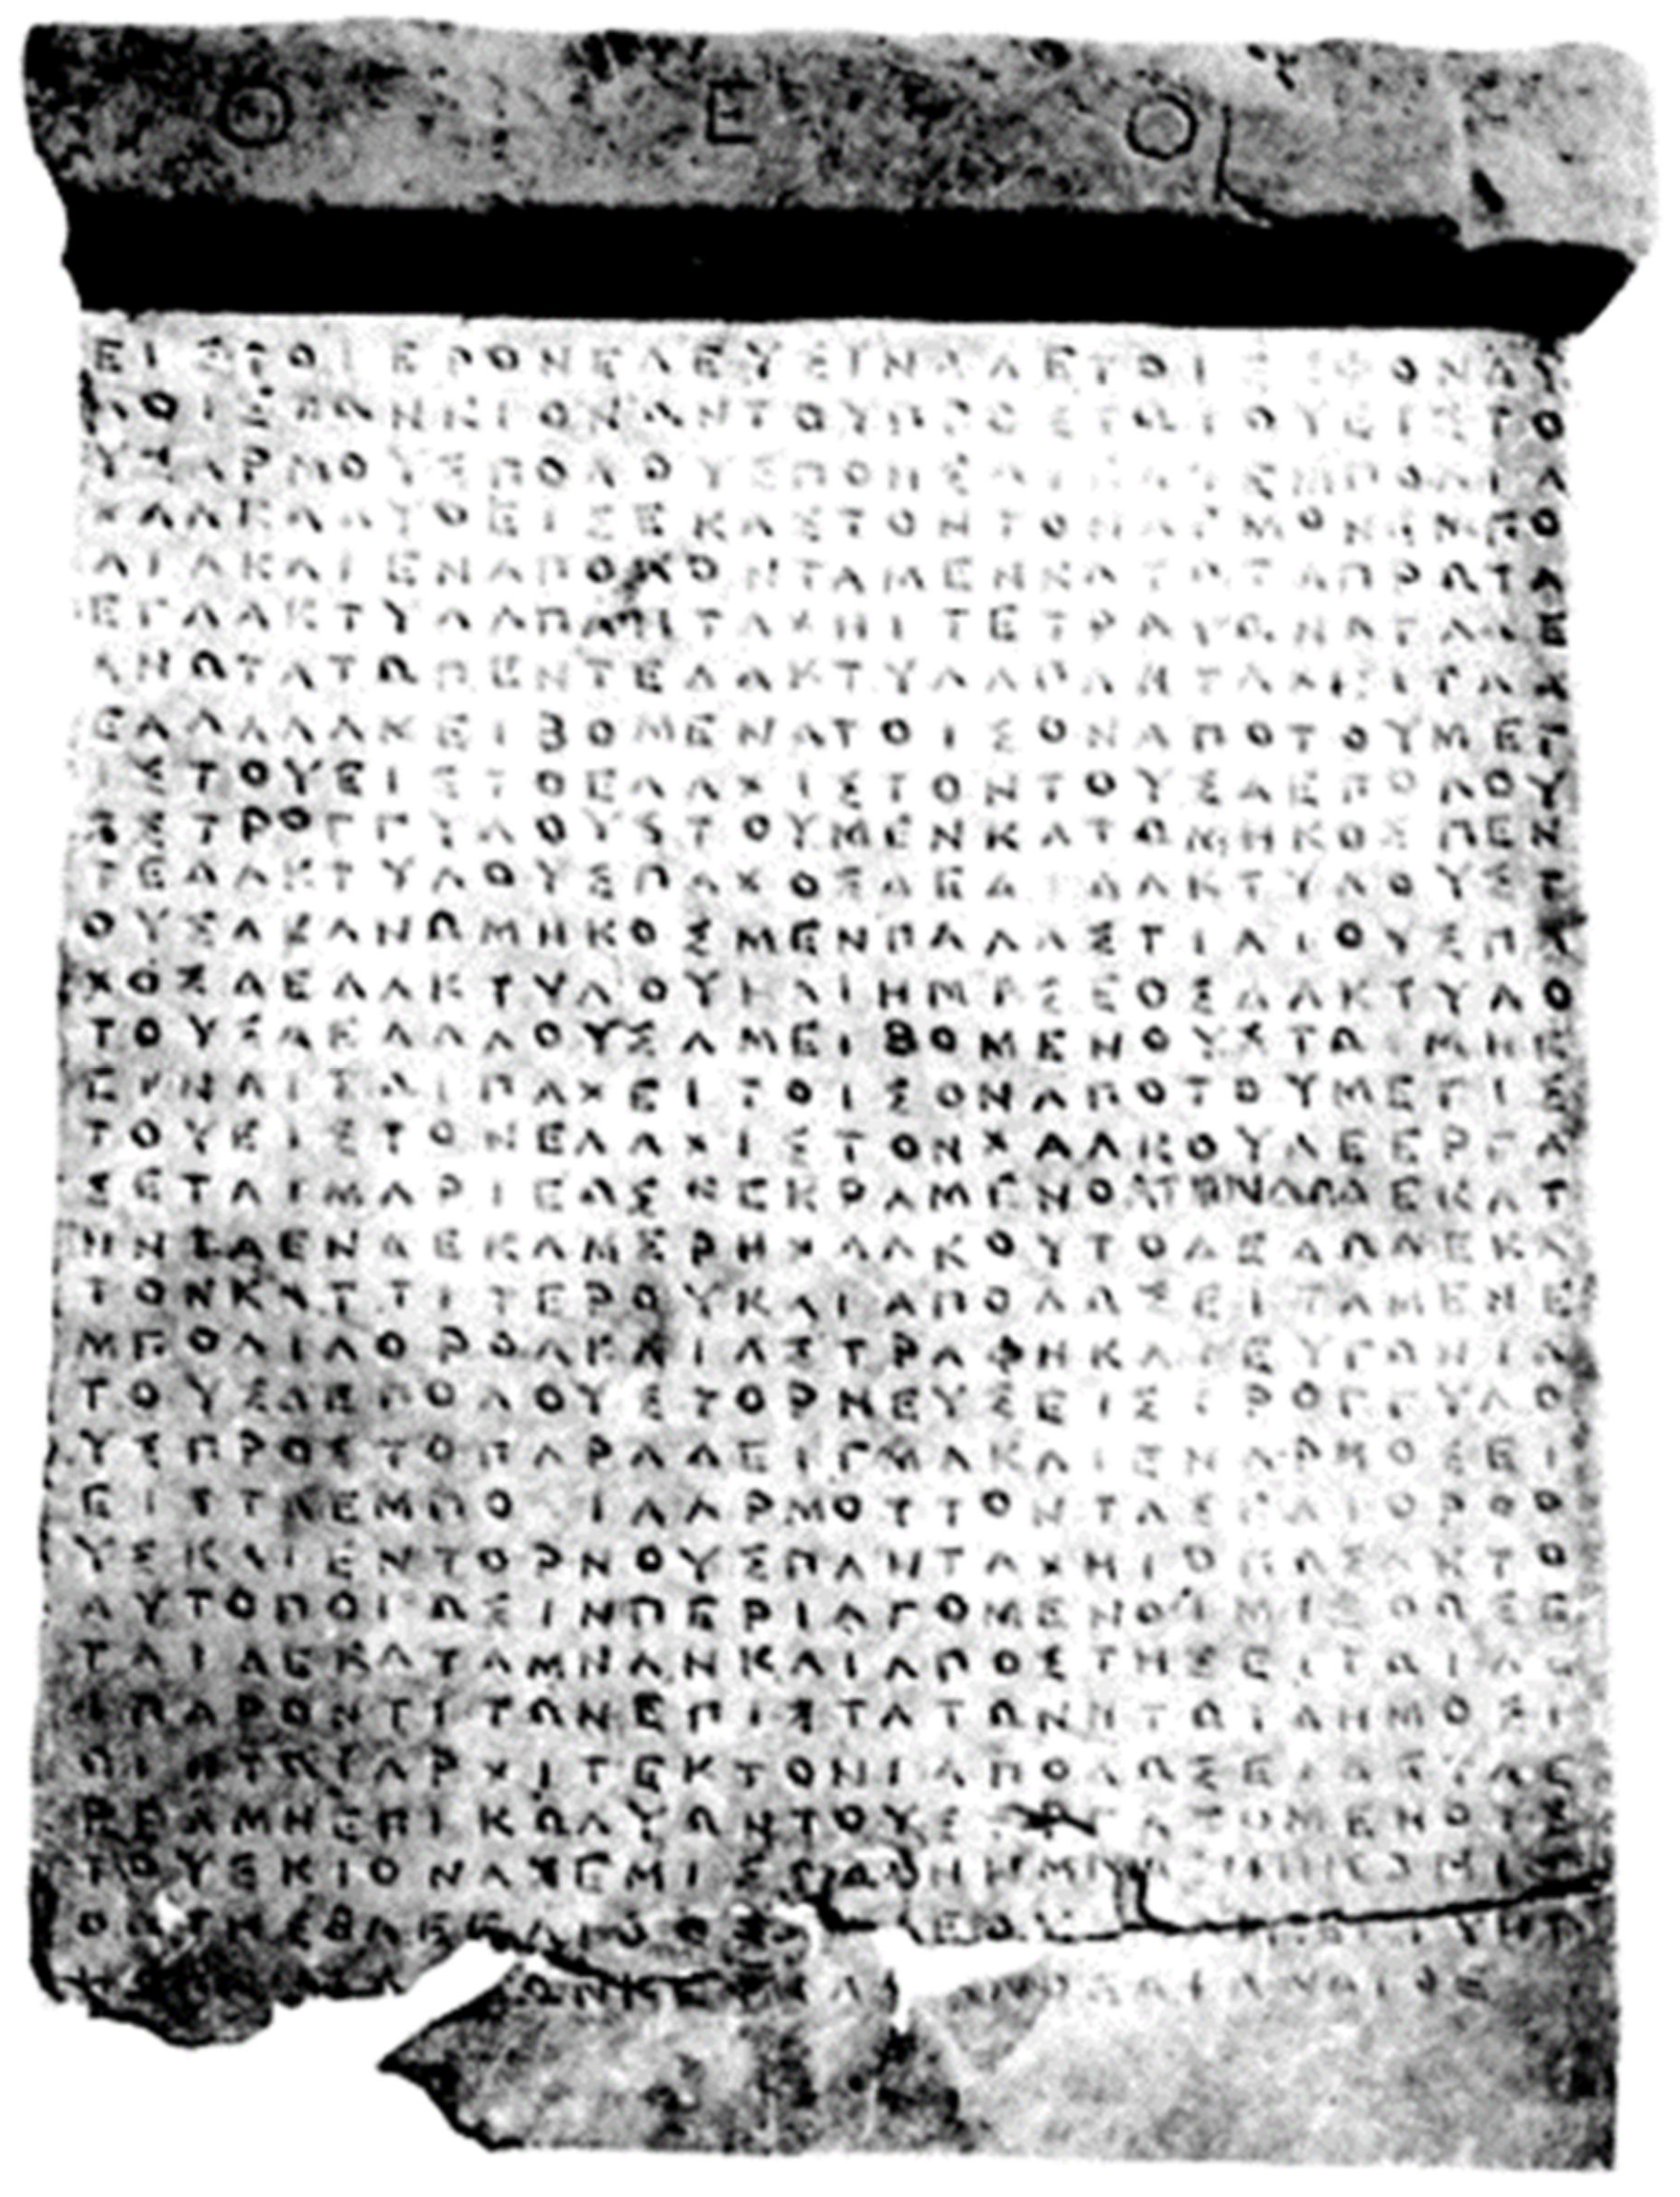 ΘΕΟΙ
ΕΙΣΤΟΙΕΡΟΝΕΛΕΥΣΙΝΑΔΕΤΟΙΣΣΦΟΝΔΥ
ΛΟΙΣΤΩΝΚΙΟΝΩΝΤΟΥΠΡΟΣΤΩΙΟΥΕΙΣΤΟ
ΥΣΑΡΜΟΥΣΠΟΛΟΥΣΠΟΗΣΑΙΚΑΙΕΜΠΟΛΙΑ
ΧΑΛΚΑΔΥΟΕΙΣΕΚΑΣΤΟΝΤΟΝΑΡΜΟΝΕΜΠΟ
ΛΙΑΚΑΙΕΝΑΠΟΛΟΝΤΑΜΕΝΚΑΤΩΤΑΠΡΩΤΑ
ΕΓΔΑΚΤΥΛΑΠΑΝΤΑΧΗΙΤΕΤΡΑΓΩΝΑΤΑΔΕ
ΑΝΩΤΑΤΩΠΕΝΤΕΔΑΚΤΥΛΑΠΑΝΤΑΧΗΙΤΑΔ
ΕΑΛΛΑΑΜΕΙΒΟΜΕΝΑΤΟΙΣΟΝΑΠΟΤΟΥΜΕΓ
ΙΣΤΟΥΕΙΣΤΟΕΛΑΧΙΣΤΟΝΤΟΥΣΔΕΠΟΛΟΥ
ΣΣΤΡΟΓΓΥΛΟΥΣΤΟΥΜΕΝΚΑΤΩΜΗΚΟΣΠΕΝ
ΤΕΔΑΚΤΥΛΟΥΣΠΑΧΟΣΔΕΔΥΔΑΚΤΥΛΟΥΣΤ
ΟΥΣΔΕΑΝΩΜΗΚΟΣΜΕΝΠΑΛΑΣΤΙΑΙΟΥΣΠΑ
ΧΟΣΔΕΔΑΚΤΥΛΟΥΚΑΙΗΜΙΣΕΟΣΔΑΚΤΥΛΟ
ΤΟΥΣΔΕΑΛΛΟΥΣΑΜΕΙΒΟΜΕΝΟΥΣΤΩΙΜΗΚ
ΕΙΚΑΙΤΩΙΠΑΧΕΙΤΟΙΣΟΝΑΠΟΤΟΥΜΕΓΙΣ
ΤΟΥΕΙΣΤΟΝΕΛΑΧΙΣΤΟΝΧΑΛΚΟΥΔΕΕΡΓΑ
ΣΕΤΑΙΜΑΡΙΕΩΣΚΕΚΡΑΜΕΝΟΤΗΝΔΩΔΕΚΑΤ
ΗΝΤΑΕΝΔΕΚΑΜΕΡΗΧΑΛΚΟΥΤΟΔΕΔΩΔΕΚΑ
ΤΟΝΚΑΤΤΙΤΕΡΟΥΚΑΙΑΠΟΔΩΣΕΙΤΑΜΕΝΕ
ΜΠΟΛΙΑΟΡΘΑΚΑΙΑΣΤΡΑΦΗΚΑΙΕΥΓΩΝΙΑ
ΤΟΥΣΔΕΠΟΛΟΥΣΤΟΡΝΕΥΣΕΙΣΤΡΟΓΓΥΛΟ
ΥΣΠΡΟΣΤΟΠΑΡΑΔΕΙΓΜΑΚΑΙΕΝΑΡΜΟΣΕΙ
ΕΙΣΤΑΕΜΠΟΛΙΑΑΡΜΟΤΤΟΝΤΑΣΚΑΙΟΡΘΟ
ΥΣΚΑΙΕΝΤΟΡΝΟΥΣΠΑΝΤΑΧΗΙΟΠΩΣΑΝΤΟ
ΑΥΤΟΠΟΙΩΣΙΝΠΕΡΙΑΓΟΜΕΝΟΙΜΙΣΘΩΣΕ
ΤΑΙΔΕΚΑΤΑΜΝΑΝΚΑΙΑΠΟΣΤΗΣΕΙΤΩΙΑΕ
ΙΠΑΡΟΝΤΙΤΩΝΕΠΙΣΤΑΤΩΝΗΤΩΙΔΗΜΟΣΙ
ΩΙΗΤΩΙΑΡΧΙΤΕΚΤΟΝΙΑΠΟΔΩΣΕΙΔΕΤΑΕ
ΡΓΑΜΗΕΠΙΚΩΛΥΩΝΤΟΥΣΕΡΓΑΖΟΜΕΝΟΥΣ
ΤΟΥΣΚΙΟΝΑΣΕΜΙΣΘΩΘΗΗΜΝΑ ΜΙΣΘ
ΩΤΗΣΒΛΕΠΑΙΟΣΣΩ
ΩΝΚΕΦΑΛΙΩΝΟΣΑΦΙΔΝΑΙΟΣ